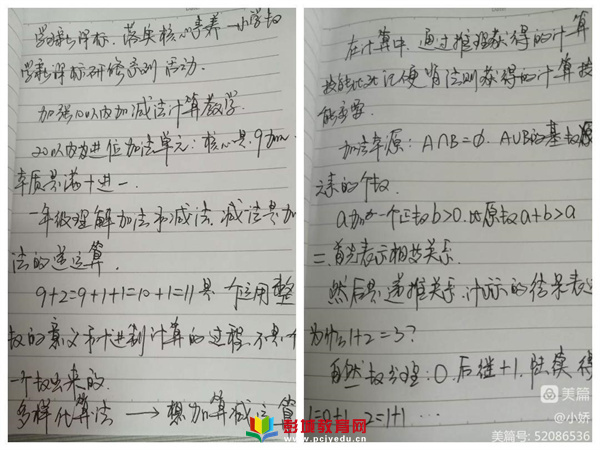 学习新课标,落实核心素养——小学数
学新课标研修系列活动.
加强10以内加减法计算教学.
20以内为进位加法单元:核心是:9加几.
本质是满十进一.
一年级理解加法和减法.减法是加
法的逆运算.
9+2=9+1+1=10+1=11是一个运用整
数的意义和十进制计算的过程,不是一个
一个数出来的.
多样化算法 → 想加算减运算
在计算中,通过推理获得的计算
技能比死记硬背法则获得的计算技
能重要.
加法本源:A∩B=∅.A∪B的基数
元素的个数.
a加一个正数b>0.比原数a+b>a
二.首先表示相等关系.
然后是递推关系.计算的结果表达
为什么1+2=3?
自然数公理:0.后继+1.陆续得
1=0+1 2=1+1 …
彭埠教育网
www.pcjyedu.cn
美篇
@小娇
美篇号: 52086536